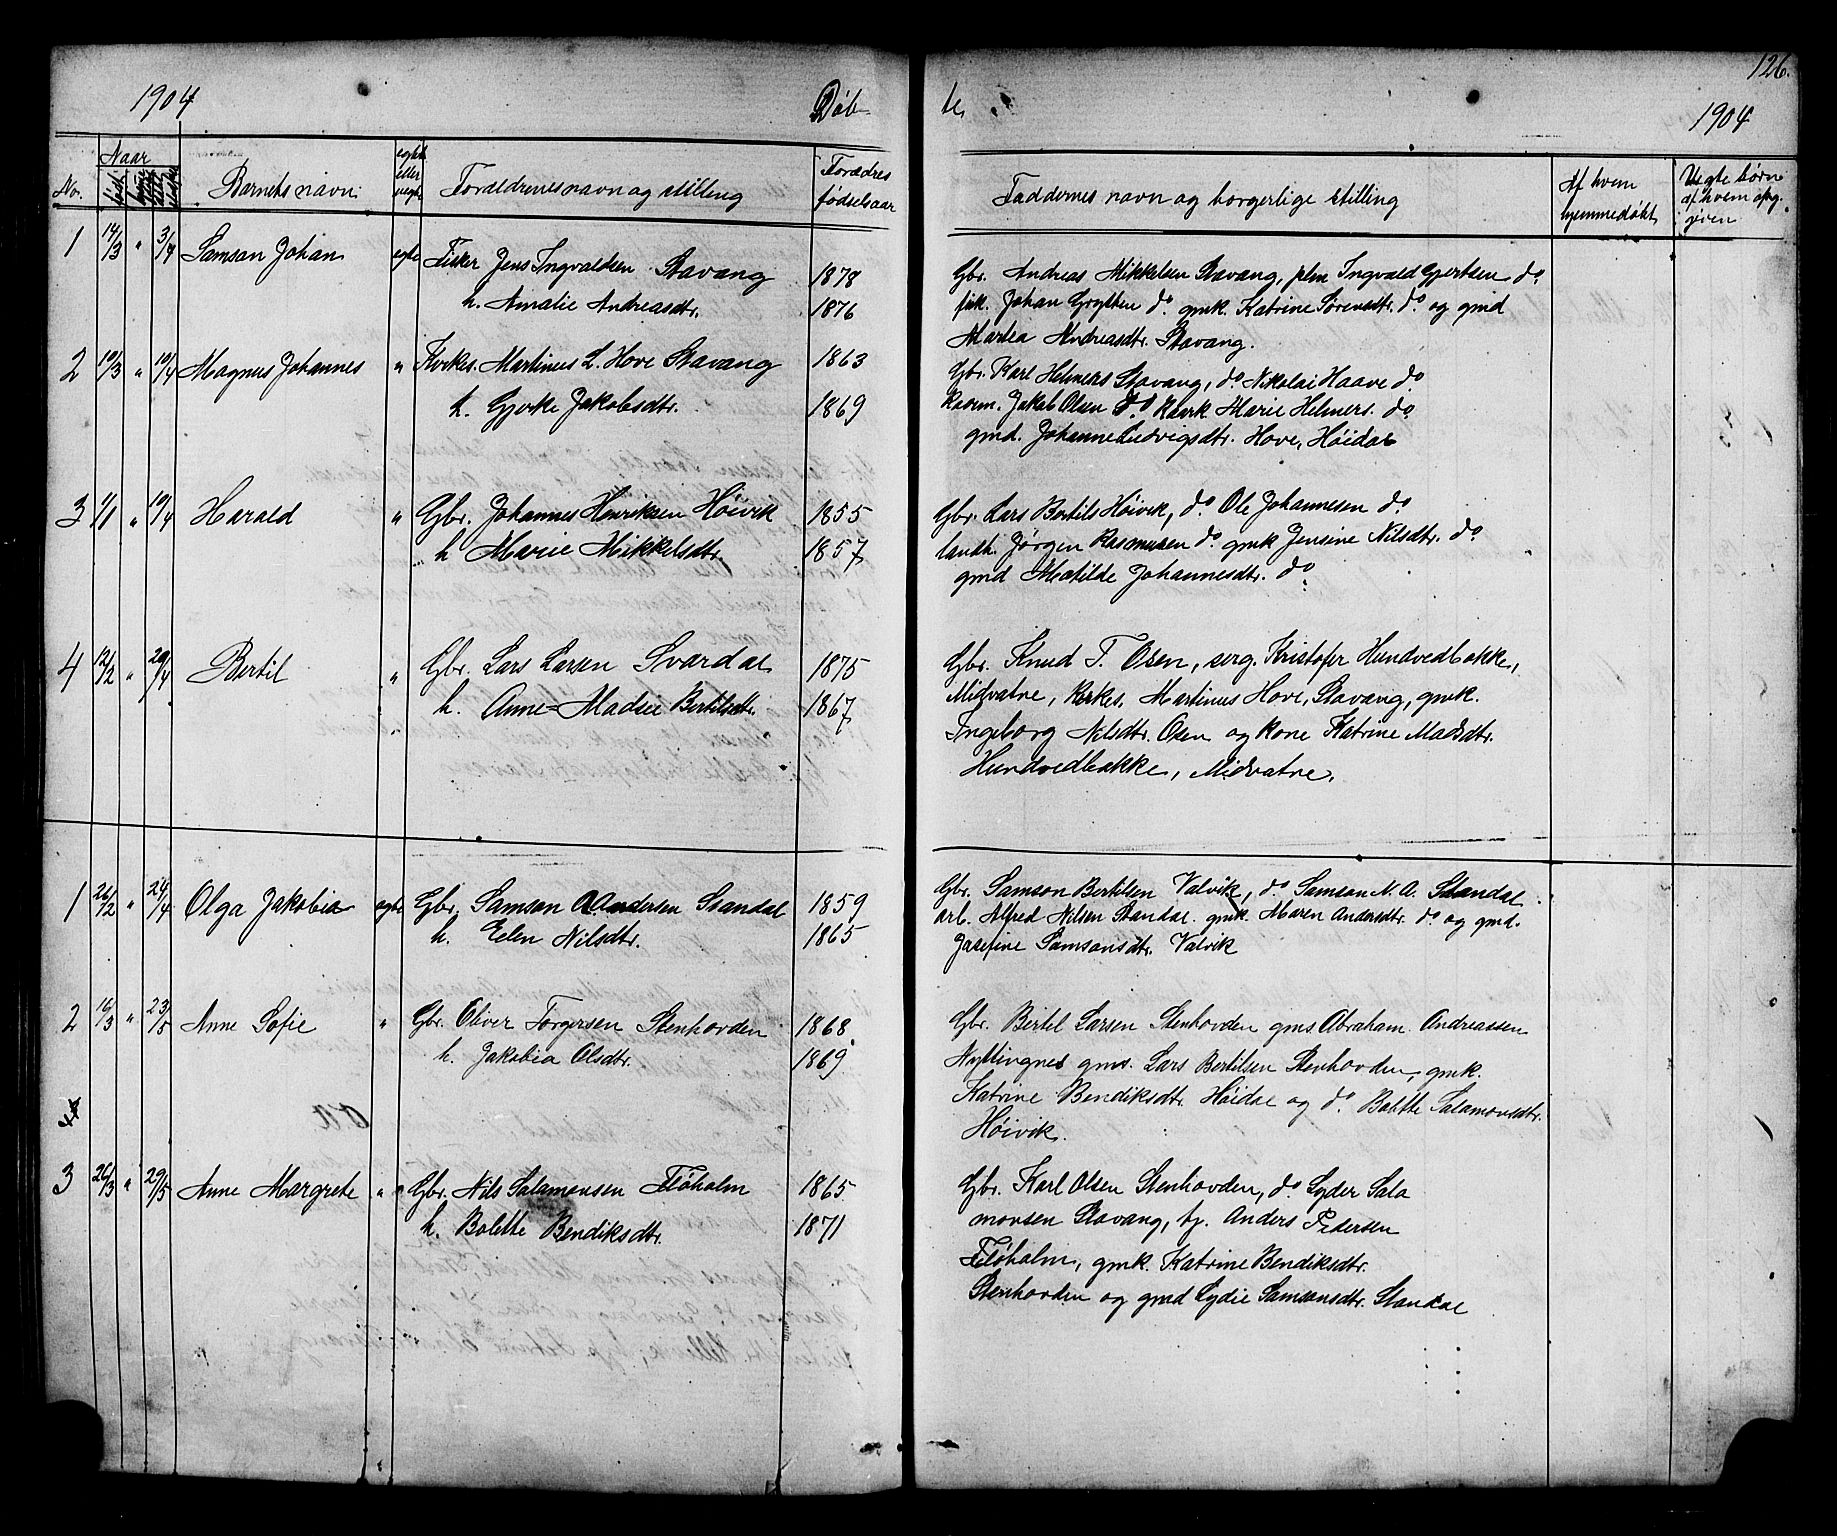 126.
1904 Døb te 1904
No. Naar Barnets navn. egte eller uegte Foreldrenes navn og stilling Forædres fødselsaar
Faddernes navn og borgerlige stilling Af hvem hjemmedøbt Uegte børn af hvem opg. given
1 14/3 " 3/4 Samson Johan egte Fisker Jens Ingvaldsen Stavang 1878
h. Amalie Andreasdtr. 1876
Gbr. Andreas Mikkelsen Stavang, Ingvald Gjertsen do.
fisk. Johan Grytten do. gmk. Katrine Sørensdtr. do og gmd
Martea Andreasdtr. Stavang.
2 10/3 " 10/4 Magnus Johannes " Kirkes. Martinus L. Hove Stavang 1863
h. Gjerke Jakobsdtr. 1869
Gbr. Karl Helmers Stavang, do. Nikolai Haave do.
Jakob Olsen do. Marie Helmers do.
gmd. Johanne Ludvigsdtr. Hove, Høidal
3 1/1 " 10/4 Harald " Gbr. Johannes Henriksen Høivik 1855
h Marie Mikkelsdtr. 1857
Gbr. Lars Bertils Høivik, do. Ole Johannesen do.
landh. Jørgen Rasmusen do. gmk Jensine Nilsdtr. do.
gmd Matilde Johannesdtr. do.
4 12/2 " 29/4 Bertil " Gbr. Lars Larsen Svardal 1875
h. Anne-Madsie Bertilsdtr. 1867
Gbr. Knud T. Osen, serg. Kristofer Hundvedbakke,
Midvatne, Kirkes. Martinus Hove, Stavang, gmk.
Ingeborg Nilsdtr. Osen og kone Katrine Madsdtr.
Hundvedbakke, Midvatne.
1 26/2 " 24/4 Olga Jakobia egte Gbr. Samson A. Andersen Standal 1859
h. Elen Nilsdtr. 1865
Gbr. Samson Bertilsen Valvik, do Samson N. A. Standal
arb. Alfred Nilsen Standal. gmk. Maren Andersdtr. do og gmd.
Josefine Samsonsdtr. Valvik
2 16/3 " 23/5 Anne Sofie " Gbr. Oliver Torgersen Stenhovden 1868.
h. Jakobia Olsdtr. 1869
Gbr. Bertel Larsen Stenhovden gms. Abraham Andreassen
Nyttingnes gms. Lars Bertilsen Stenhovden, gmk.
Katrine Bendiksdtr. Høidal og do. Bolette Salamonsdtr.
Høivik.
3 26/3 " 29/5 Anne Margrete " Gbr. Nils Salamonsen Fløholm 1865
h. Bolette Bendiksdtr. 1871
Gbr. Karl Olsen Stenhovden, do Lyder Sala
monsen Stavang, fj. Anders Pedersen
Fløholm, gmk. Katrine Bendiksdtr.
Stenhovden og gmd Lydie Samsonsdtr. Standal